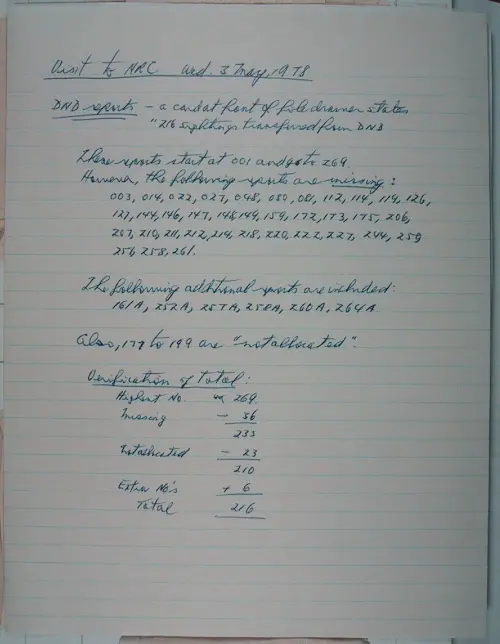 Visit to NRC Wed. 3 May, 1978
DND reports - a card at front of file drawer states
"216 sightings transferred from DND
These reports start at 001 and go to 269.
However, the following reports are missing:
003, 014, 022, 027, 048, 050, 081, 112, 114, 119, 126,
127, 144, 146, 147, 148, 149, 159, 172, 173, 175, 206,
207, 210, 211, 212, 214, 218, 220, 222, 227, 244, 250
256, 258, 261.
The following additional reports are included:
161A, 252A, 257A, 258A, 260A, 264A
Also, 177 to 199 are "not allocated".
Verification of Total:
Highest No. 269.
Missing - 36
233
Not allocated - 23
210
Extra No's + 6
Total 216